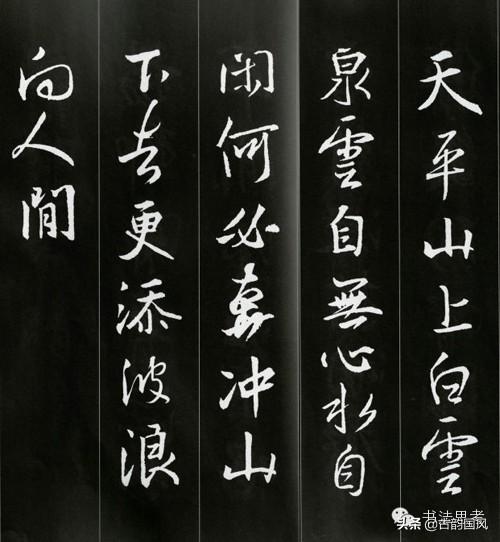 天平山上白雲
泉雲自無心水自
閑何必奔冲山
下去更添波浪
向人間
书法思考
头条@古韵国风